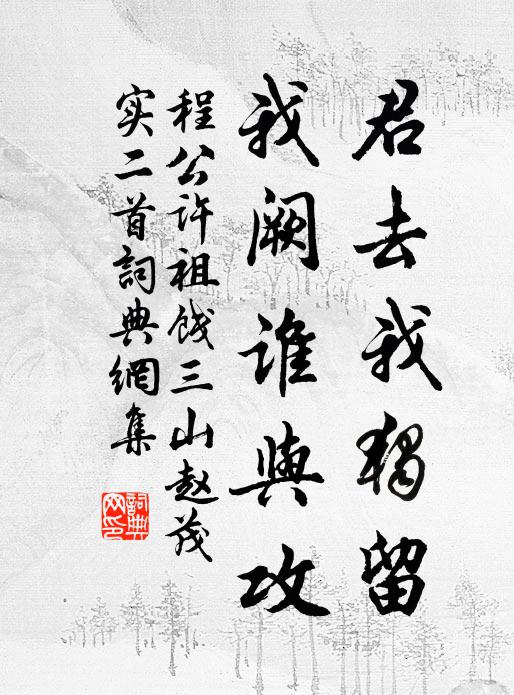 君去我獨留
我阙谁與攻
程公许祖饯三山赵茂
实二首詞典網集
詞典网印